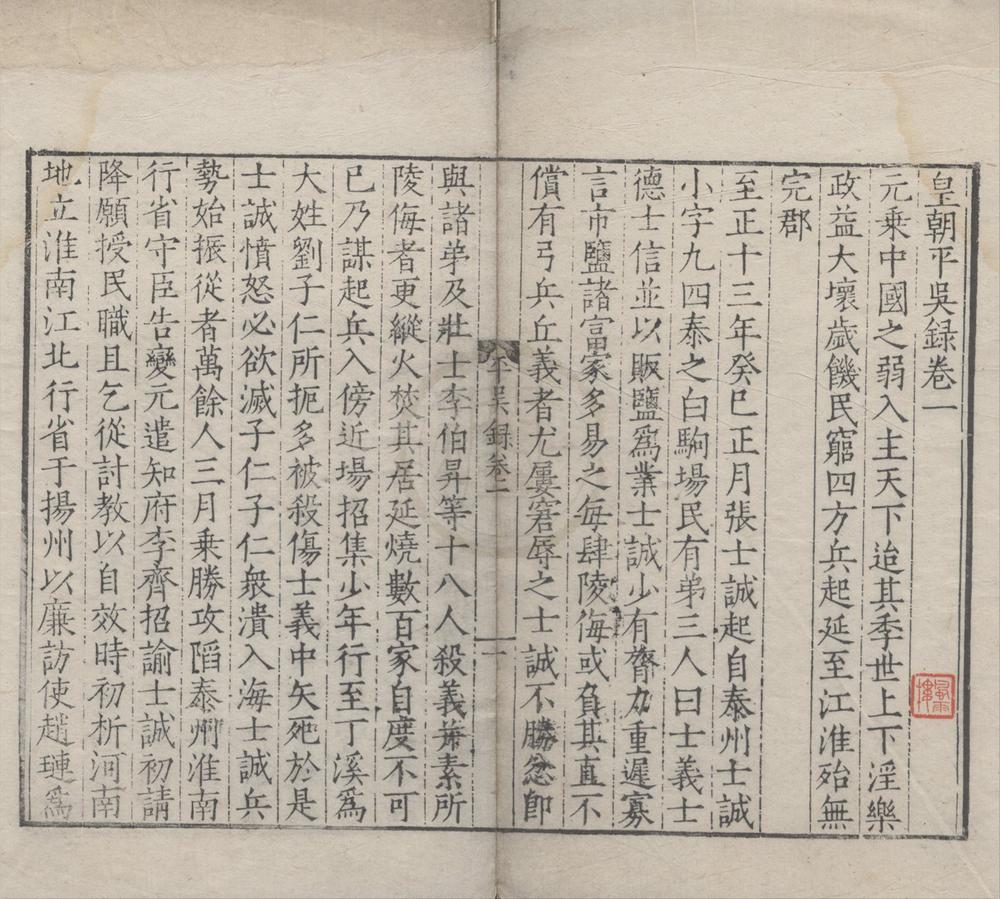 皇朝平吳録卷一
元乗中國之弱入主天下迨其季世上下淫樂
政益大壞歲饑民窮四方兵起延至江淮殆無
完郡
至正十三年癸巳正月張士誠起自泰州士誠
小字九四泰之白駒場民有弟三人曰士義士
德士信並以販鹽爲業士誠少有膂力重遲寡
言市鹽諸富家多易之每肆陵侮或負其直不
償有弓兵丘義者尤屢窘辱之士誠不勝忿即
平吳録卷一
一
與諸弟及壯士李伯昇等十八人殺義并素所
陵侮者更縱火焚其居延燒數百家自度不可
已乃謀起兵入傍近場招集少年行至丁溪爲
大姓劉子仁所扼多被殺傷士義中矢死於是
士誠憤怒必欲滅子仁子仁衆潰入海士誠兵
勢始振從者萬餘人三月乗勝攻陷泰州淮南
行省守臣告變元遣知府李齊招諭士誠初請
降願授民職且乞從討教以自效時初析河南
地立淮南江北行省于揚州以廉訪使趙璉爲